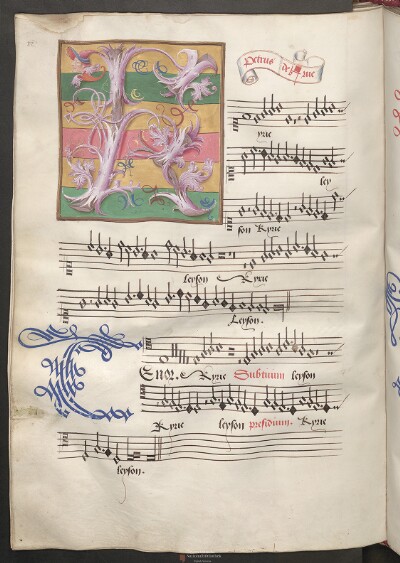 Petrus de la rue
yrie
ley
son Kyrie
leyson Kyrie
Leyson.
TEnor. Kyrie Subtuum leyson
Kyrie leyson presidium. Kyrie
leyson.